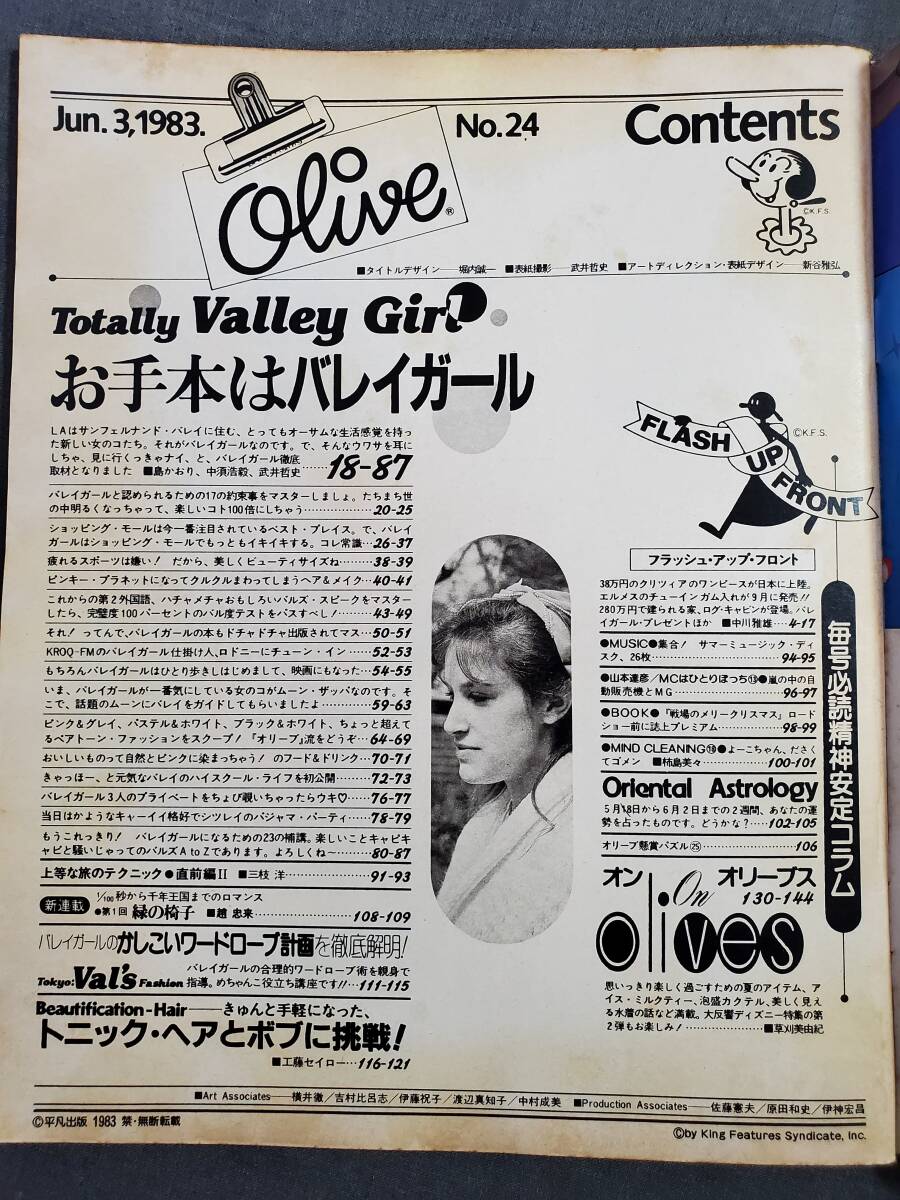 Jun. 3, 1983.
Olive®
No.24
Contents
©K.F.S.
■タイトルデザイン——堀内誠一 ■表紙撮影——武井哲史 ■アートディレクション・表紙デザイン——新谷雅弘
Totally Valley Girl
お手本はバレイガール
LAはサンフェルナンド・バレイに住む、とってもオーサムな生活感覚を持っ
た新しい女のコたち。それがバレイガールなのです。で、そんなウワサを耳に
しちゃ、見に行くっきゃナイ、と、バレイガール徹底
取材となりました ■島かおり、中須浩毅、武井哲史……18-87
バレイガールと認められるための17の約束事をマスターしましょ。たちまち世
の中明るくなっちゃって、楽しいコト100倍にしちゃう……20-25
ショッピング・モールは今一番注目されているベスト・プレイス。で、バレイ
ガールはショッピング・モールでもっともイキイキする。コレ常識…26-37
疲れるスポーツは嫌い! だから、美しくビューティサイズね……38-39
ピンキー・プラネットになってクルクルまわってしまうヘア&メイク…40-41
これからの第2外国語、ハチャメチャおもしろいバルズ・スピークをマスター
したら、完璧度100パーセントのバル度テストをパスすべし!……43-49
それ! ってんで、バレイガールの本もドチャドチャ出版されてマス…50-51
KROQ-FMのバレイガール仕掛け人、ロドニーにチューン・イン……52-53
もちろんバレイガールはひとり歩きしはじめまして、映画にもなった…54-55
いま、バレイガールが一番気にしている女のコがムーン・ザッパなのです。そ
こで、話題のムーンにバレイをガイドしてもらいましたよ……59-63
ピンク&グレイ、パステル&ホワイト、ブラック&ホワイト、ちょっと超えて
るペアトーン・ファッションをスクープ! 『オリーブ』流をどうぞ…64-69
おいしいものって自然とピンクに染まっちゃう! のフード&ドリンク…70-71
きゃっほー、と元気なバレイのハイスクール・ライフを初公開……72-73
バレイガール3人のプライベートをちょぴ覗いちゃったらウキ♡……76-77
当日はかようなキャーイイ格好でシツレイのパジャマ・パーティ……78-79
もうこれっきり! バレイガールになるための23の補講。楽しいことキャピキ
ャピと騒いじゃってのバルズA to Zであります。よろしくね〜……80-87
上等な旅のテクニック●直前編II ■三枝 洋……91-93
新連載
1/100秒から千年王国までのロマンス
●第1回 緑の椅子 ■趙 忠来……108-109
バレイガールのかしこいワードローブ計画を徹底解明!
Tokyo: Val's Fashion
バレイガールの合理的ワードローブ術を親身で
指導。めちゃんこ役立ち講座です!!…111-115
Beautification-Hair——きゅんと手軽になった、
トニック・ヘアとボブに挑戦!
■工藤セイロー…116-121
FLASH UP FRONT
©K.F.S.
フラッシュ・アップ・フロント
38万円のクリツィアのワンピースが日本に上陸。
エルメスのチューインガム入れが9月に発売!!
280万円で建られる家、ログ・キャビンが登場。バレ
イガール・プレゼントほか ■中川雅雄…4-17
●MUSIC●集合! サマーミュージック・ディ
スク、26枚……94-95
●山本達彦/MCはひとりぼっち⑬●嵐の中の自
動販売機とMG……96-97
●BOOK●『戦場のメリークリスマス』ロード
ショー前に誌上プレミアム……98-99
●MIND CLEANING⑱●よーこちゃん、ださく
てゴメン ■柿島美々……100-101
Oriental Astrology
5月18日から6月2日までの2週間、あなたの運
勢を占ったものです。どうかな?……102-105
オリーブ懸賞パズル㉕……106
オン オリーブス
On olives
130-144
思いっきり楽しく過ごすための夏のアイテム、ア
イス・ミルクティー、泡盛カクテル、美しく見え
る水着の話など満載。大反響ディズニー特集の第
2弾もお楽しみ!……■草刈美由紀
毎号必読精神安定コラム
■Art Associates——横井徹/吉村比呂志/伊藤祝子/渡辺真知子/中村成美 ■Production Associates——佐藤憲夫/原田和史/伊神宏昌
©平凡出版 1983 禁・無断転載
©by King Features Syndicate, Inc.